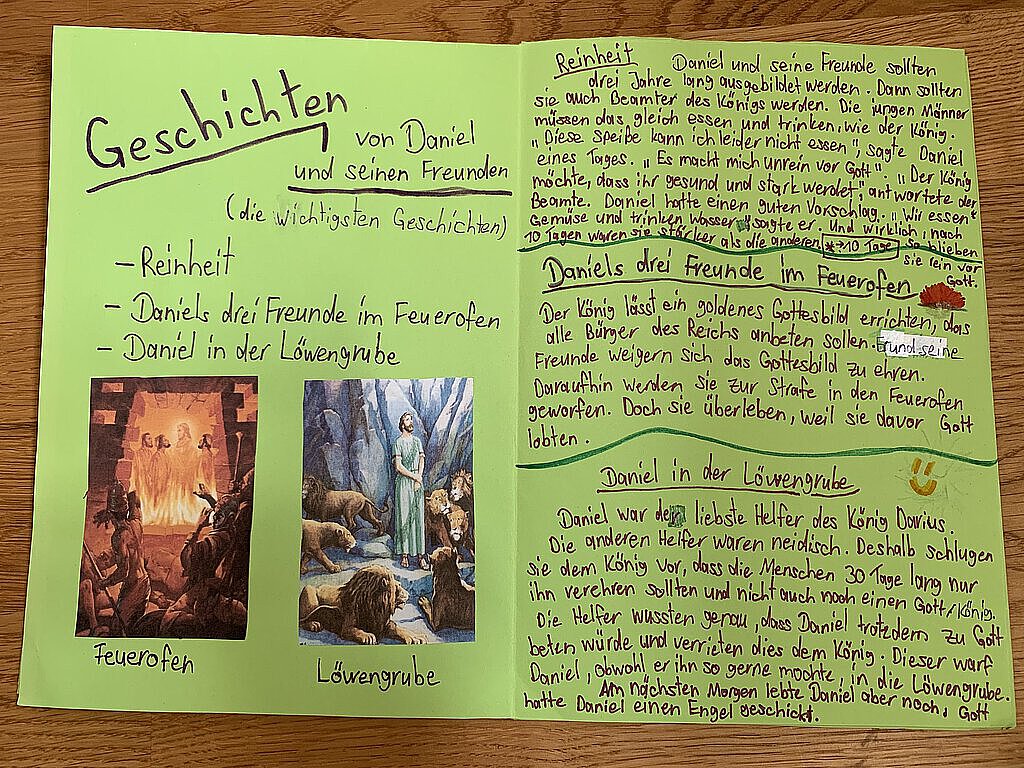 Geschichten
von Daniel
und seinen Freunden
(die wichtigsten Geschichten)
- Reinheit
- Daniels drei Freunde im Feuerofen
- Daniel in der Löwengrube
Feuerofen
Löwengrube
Reinheit Daniel und seine Freunde sollten
drei Jahre lang ausgebildet werden. Dann sollten
sie auch Beamter des Königs werden. Die jungen Männer
müssen das gleich essen und trinken, wie der König.
"Diese Speiße kann ich leider nicht essen", sagte Daniel
eines Tages. "Es macht mich unrein vor Gott". "Der König
möchte, dass ihr gesund und stark werdet", antwortete der
Beamte. Daniel hatte einen guten Vorschlag. "Wir essen*
Gemüse und trinken Wasser", sagte er. Und wirklich, nach
10 Tagen waren sie stärker als die anderen. *=10 Tage So blieben
sie rein vor
Gott.
Daniels drei Freunde im Feuerofen
Der König lässt ein goldenes Gottesbild errichten, das
alle Bürger des Reichs anbeten sollen. Er und seine
Freunde weigern sich das Gottesbild zu ehren.
Daraufhin werden sie zur Strafe in den Feuerofen
geworfen. Doch sie überleben, weil sie davor Gott
lobten.
Daniel in der Löwengrube
Daniel war der liebste Helfer des König Darius.
Die anderen Helfer waren neidisch. Deshalb schlugen
sie dem König vor, dass die Menschen 30 Tage lang nur
ihn verehren sollten und nicht auch noch einen Gott/König.
Die Helfer wussten genau, dass Daniel trotzdem zu Gott
beten würde und verrieten dies dem König. Dieser warf
Daniel, obwohl er ihn so gerne mochte, in die Löwengrube.
Am nächsten Morgen lebte Daniel aber noch, Gott
hatte Daniel einen Engel geschickt.